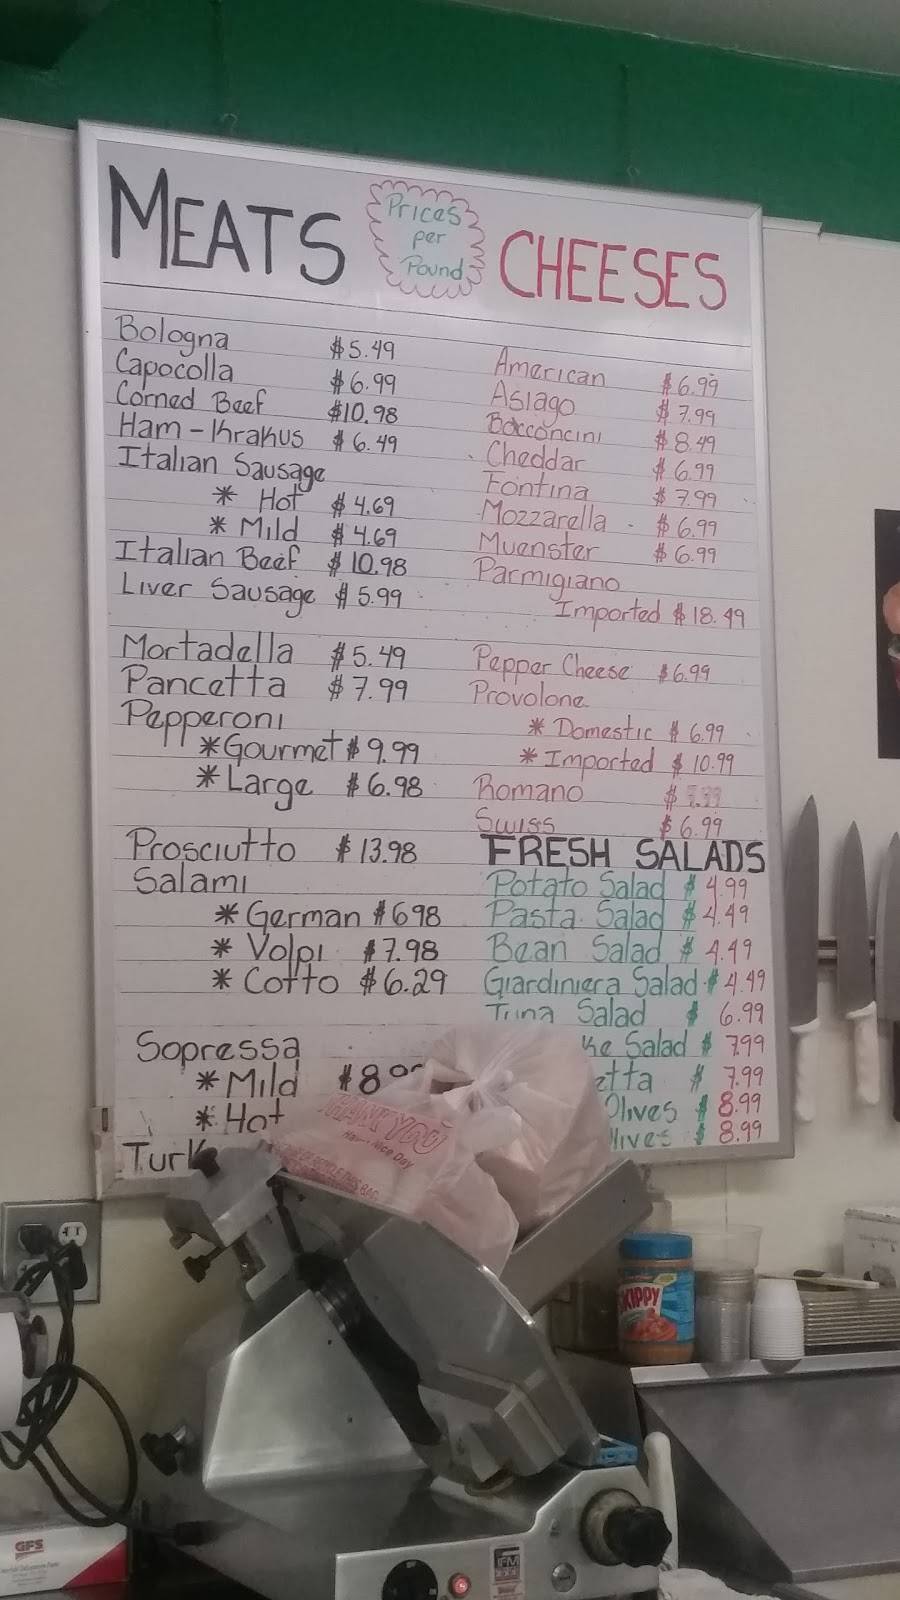 MEATS
Prices
per
Pound
CHEESES
Bologna $5.49
Capocolla $6.99
Corned Beef $10.98
Ham - Krakus $6.49
Italian Sausage
* Hot $4.69
* Mild $4.69
Italian Beef $10.98
Liver Sausage $5.99
Mortadella $5.49
Pancetta $7.99
Pepperoni
* Gourmet $9.99
* Large $6.98
Prosciutto $13.98
Salami
* German $6.98
* Volpi $7.98
* Cotto $6.29
Sopressa
* Mild $8.99
* Hot
Turk
American $6.99
Asiago $7.99
Bocconcini $8.49
Cheddar $6.99
Fontina $7.99
Mozzarella $6.99
Muenster $6.99
Parmigiano
Imported $18.49
Pepper Cheese $6.99
Provolone
* Domestic $6.99
* Imported $10.99
Romano $
Swiss $6.99
FRESH SALADS
Potato Salad $4.99
Pasta Salad $4.49
Bean Salad $4.49
Giardiniera Salad $4.49
Tuna Salad $6.99
ke Salad $7.99
etta $7.99
Olives $8.99
lives $8.99
THANK YOU
Have a Nice Day
SKIPPY
GFS